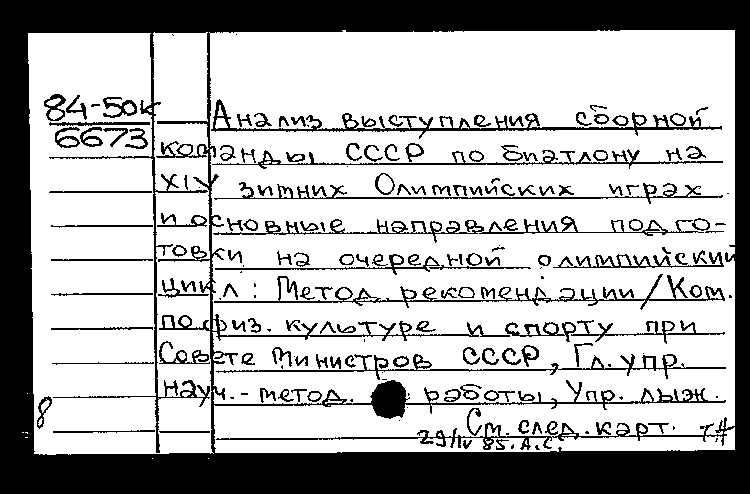 84-50к
6673
Анализ выступления сборной
команды СССР по биатлону на
XIV зимних Олимпийских играх
и основные направления подго-
товки на очередной олимпийский
цикл: Метод. рекомендации/Ком.
по физ. культуре и спорту при
Совете Министров СССР, Гл. упр.
науч.-метод. работы, Упр. лыж.
8
См. след. карт. ТА
29/IV 85. А.С.